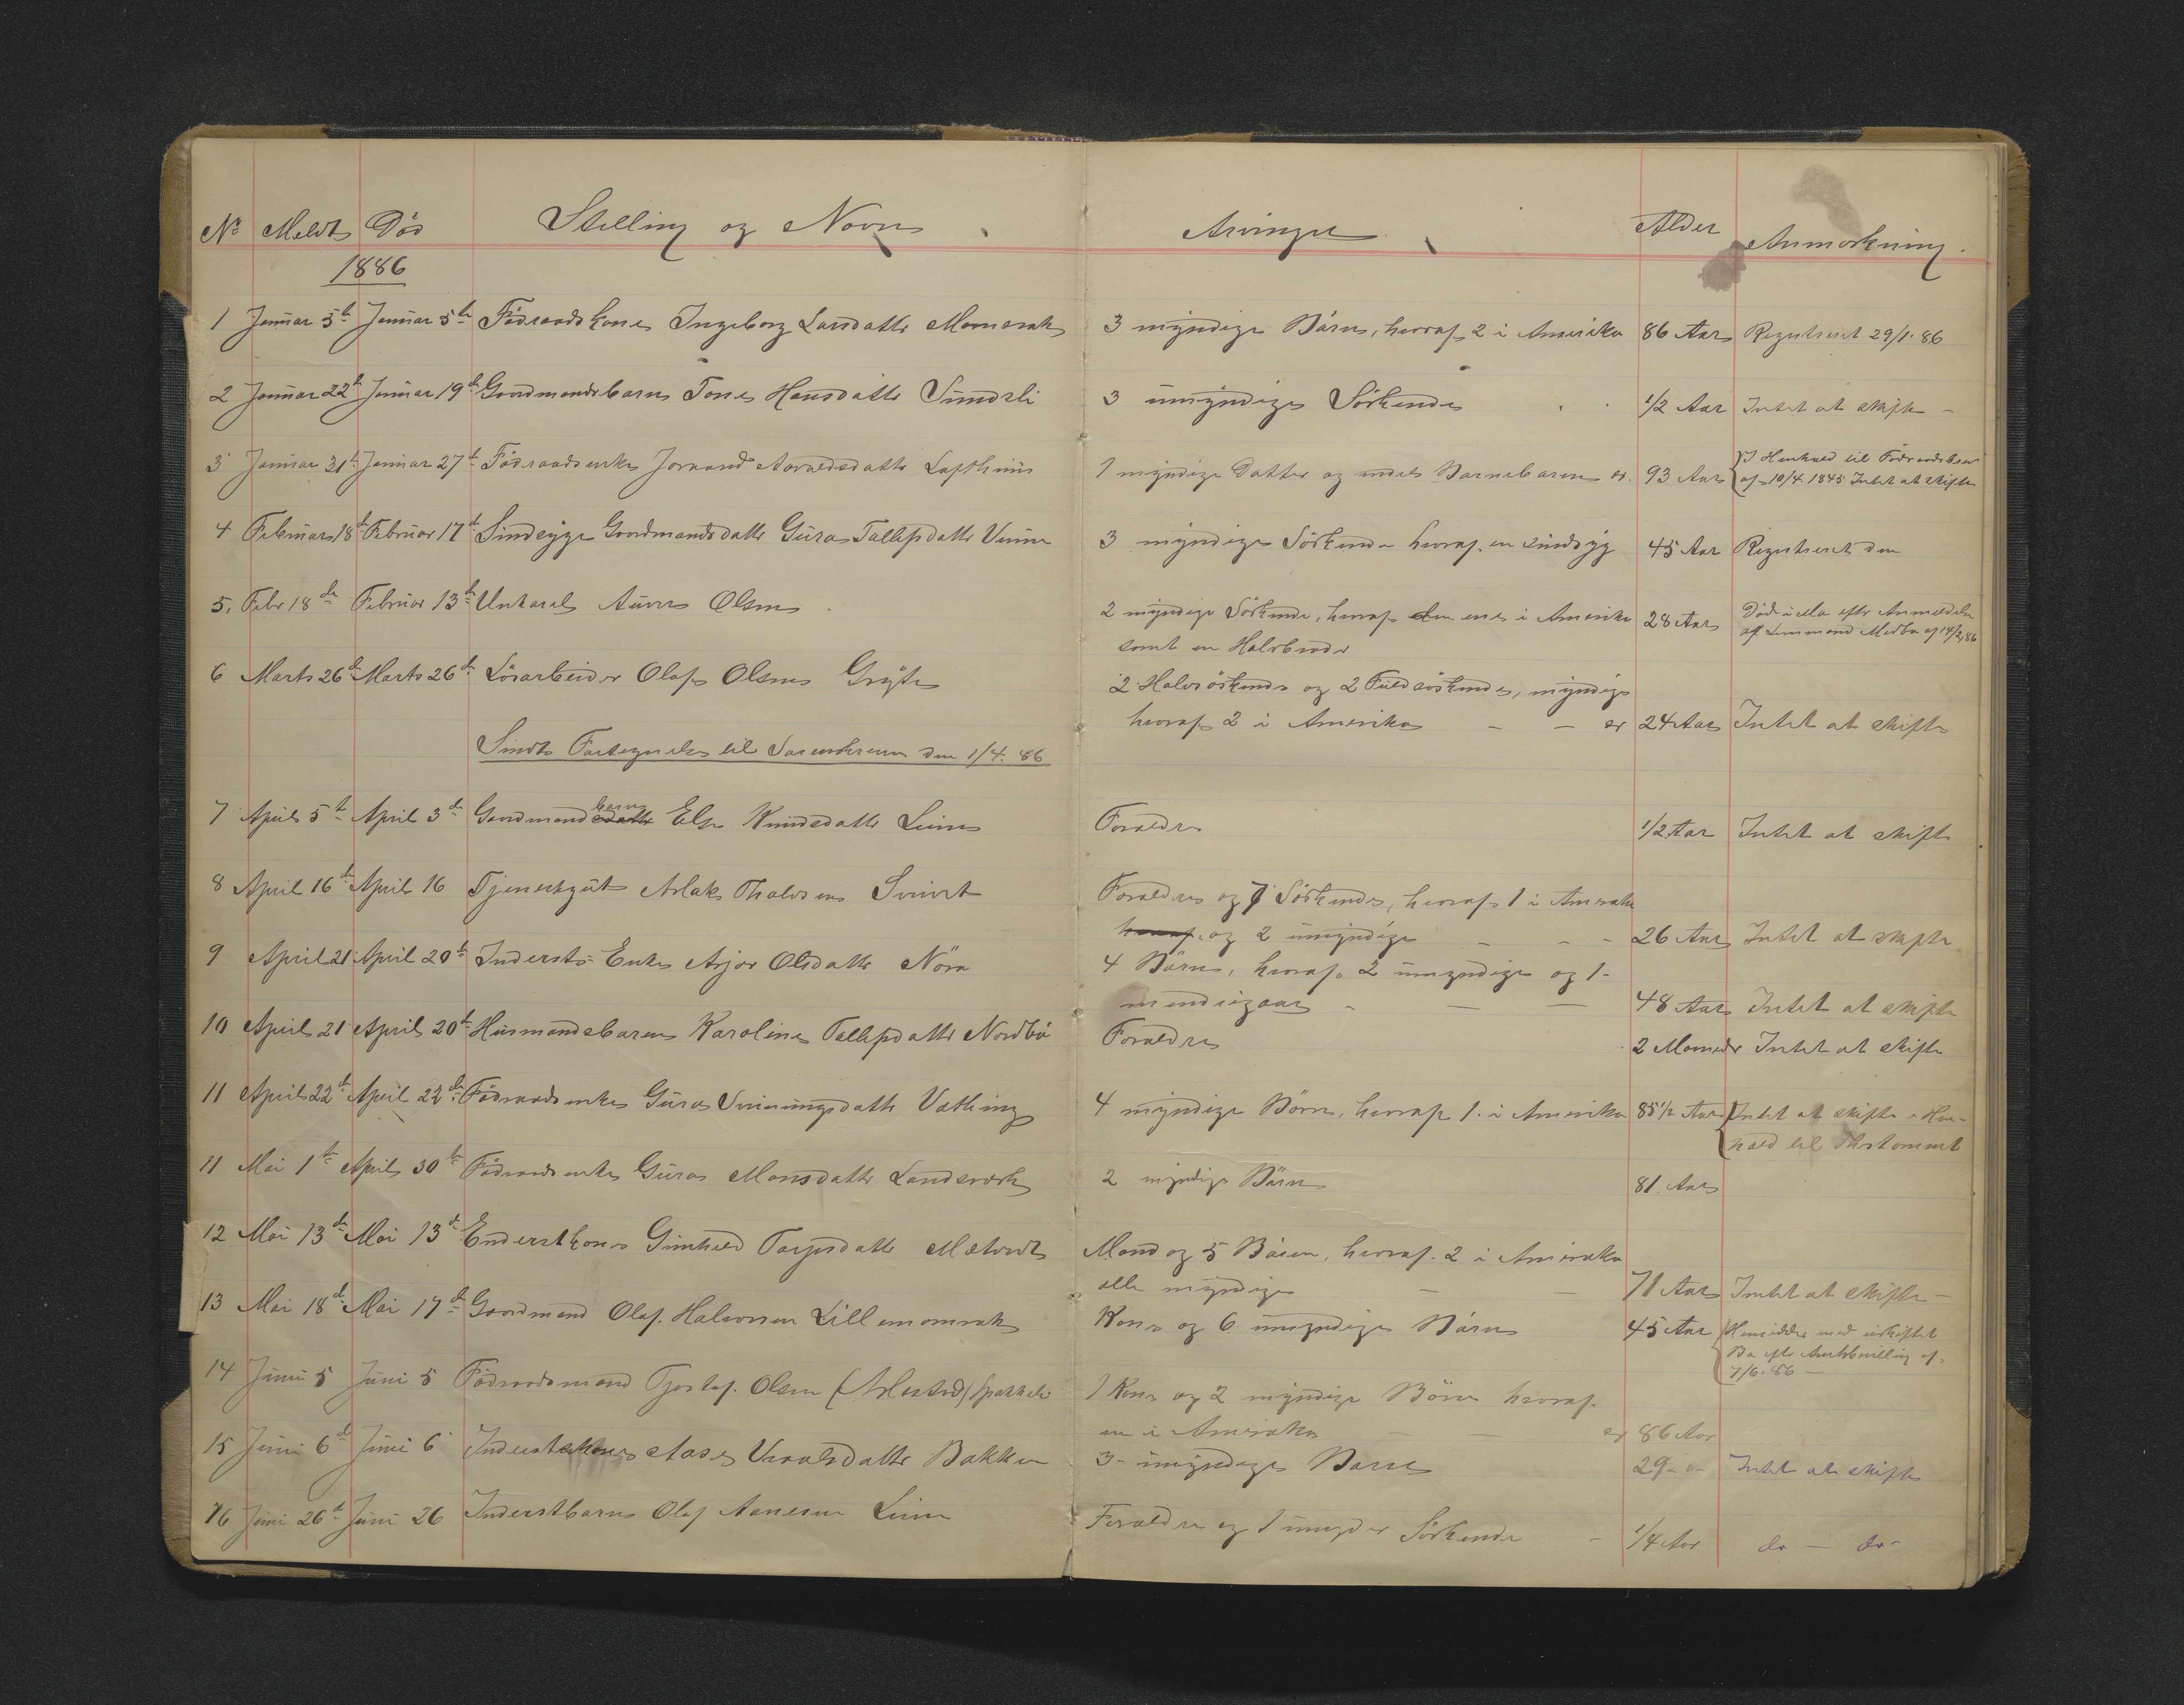 No Meldt Död Stilling og Navn Arvinger Alder Anmærkning.
1886
1 Januar 5te Januar 5te Födraadskone Ingeborg Larsdatter 3 myndige Börn, hvoraf 2 i Amerika 86 Aar Registreret 29/1. 86
2 Januar 22de Januar 19de Gaardmandsbarn Tone Hansdatter Sundsli 3 umyndige Söskende 1/2 Aar Intet at skifte -
3 Januar 31te Januar 27de Födraadsenke Joraand 1 myndige Datter og Barnebarn er 93 Aar I Henhold til Födraadsbrev
af 10/4 1845 Intet at skifte
4 Februar 18de Februar 17de Sindsyge Gaardmandsdatter Guro Tallefsdatter 3 myndige Söskende hvoraf en sindsyg 45 Aar Registreret den
5. Febr 18de Februar 13de Unkarl Olsen 2 myndige Söskende, hvoraf den ene i Amerika 28 Aar Död i efter Anmeldelse
samt en Halvbroder af Lensmand af 14/2 86
6 Marts 26de Marts 26de Lösarbeider Olaf Olsen Gryte 2 Halvsöskende og 2 Fuldsöskende, myndige
hvoraf 2 i Amerika - - er 24 Aar Intet at skifte
Sendt Fortegnelse til Sorenskriveren den 1/4. 86
7 April 5te April 3de Gaardmandsdatter barn Else Knudsdatter Forældre 1/2 Aar Intet at skifte
8 April 16de April 16 Tjenestgut Aslak Forældre og 7 Söskende, hvoraf 1 i Amerika
hvoraf og 2 umyndige - - - 26 Aar Intet at skifte
9 April 21 April 20de Inderst-Enke Asjer Olsdatter 4 Börn, hvoraf 2 umyndige og 1-
- - - 48 Aar Intet at skifte
10 April 21 April 20de Husmandsbarn Karoline Tallefsdatter Nordbö Forældre 2 Maaneder Intet at skifte
11 April 22de April 22de Födraadsenke Guro Vathing 4 myndige Börn, hvoraf 1 i Amerika 85 1/2 Aar Intet at skifte i Hen-
hold til Thestament
11 Mai 1te April 30te Födraadsenke Guro Monsdatter Landsverk 2 myndige Börn 81 Aar
12 Mai 13de Mai 13de Enderstkone Gunhild Mand og 5 Börn, hvoraf 2 i Amerika
alle myndige - - 71 Aar Intet at skifte -
13 Mai 18de Mai 17de Gaardmand Olaf Halvorsen Kone og 6 umyndige Börn 45 Aar Hensidder med uskiftet
Bo efter Amtsbevilling af
7/6. 86 -
14 Juni 5 Juni 5 Födraadsmand Olsen 1 Kone og 2 myndige Börn hvoraf
en i Amerika - er 86 Aar
15 Juni 6de Juni 6 Inderstekone Aase Bakken 3 umyndige Börn 29 Intet at skifte
16 Juni 26de Juni 26 Inderstbarn Olaf Forældre og 1 Söskende - 1/4 Aar do - do -